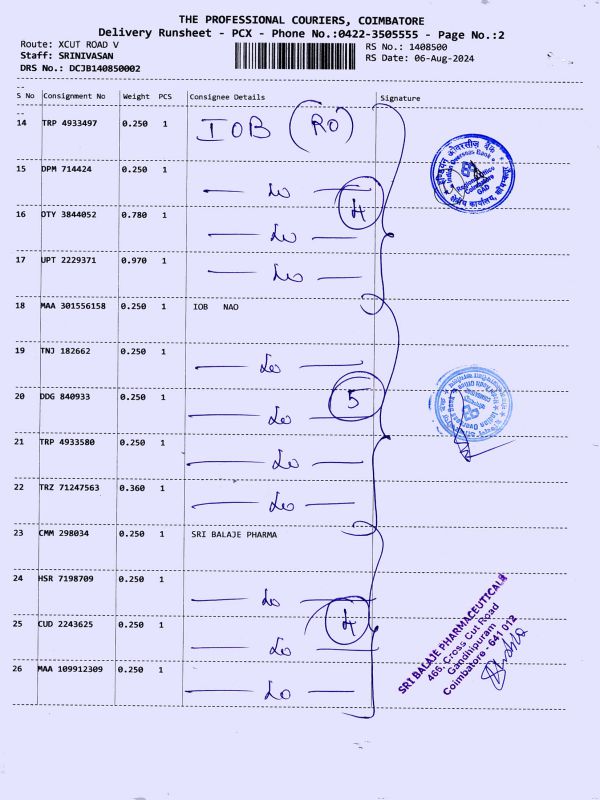 THE PROFESSIONAL COURIERS, COIMBATORE
Delivery Runsheet - PCX - Phone No.:0422-3505555 - Page No.:2
Route: XCUT ROAD V
RS No.: 1408500
Staff: SRINIVASAN
RS Date: 06-Aug-2024
DRS No.: DCJB140850002
S No Consignment No Weight PCS Consignee Details Signature
14 TRP 4933497 0.250 1 IOB (RO)
15 DPM 714424 0.250 1 — Do —
4
16 OTY 3844052 0.780 1 — Do —
17 UPT 2229371 0.970 1 — Do —
18 MAA 301556158 0.250 1 IOB NAO
19 TNJ 182662 0.250 1 — Do —
20 DDG 840933 0.250 1 — Do —
5
21 TRP 4933580 0.250 1 — Do —
22 TRZ 71247563 0.360 1 — Do —
23 CMM 298034 0.250 1 SRI BALAJE PHARMA
24 HSR 7198709 0.250 1 — Do —
4
25 CUD 2243625 0.250 1 — Do —
26 MAA 109912309 0.250 1 — Do —
इण्डियन ओवरसीज बैंक
Indian Overseas Bank
Regional Office
Coimbatore
GAD
क्षेत्रीय कार्यालय, कोयम्बत्तूर
Indian Overseas Bank
SRI BALAJE PHARMACEUTICALS
466, Cross Cut Road
Gandhipuram
Coimbatore - 641 012